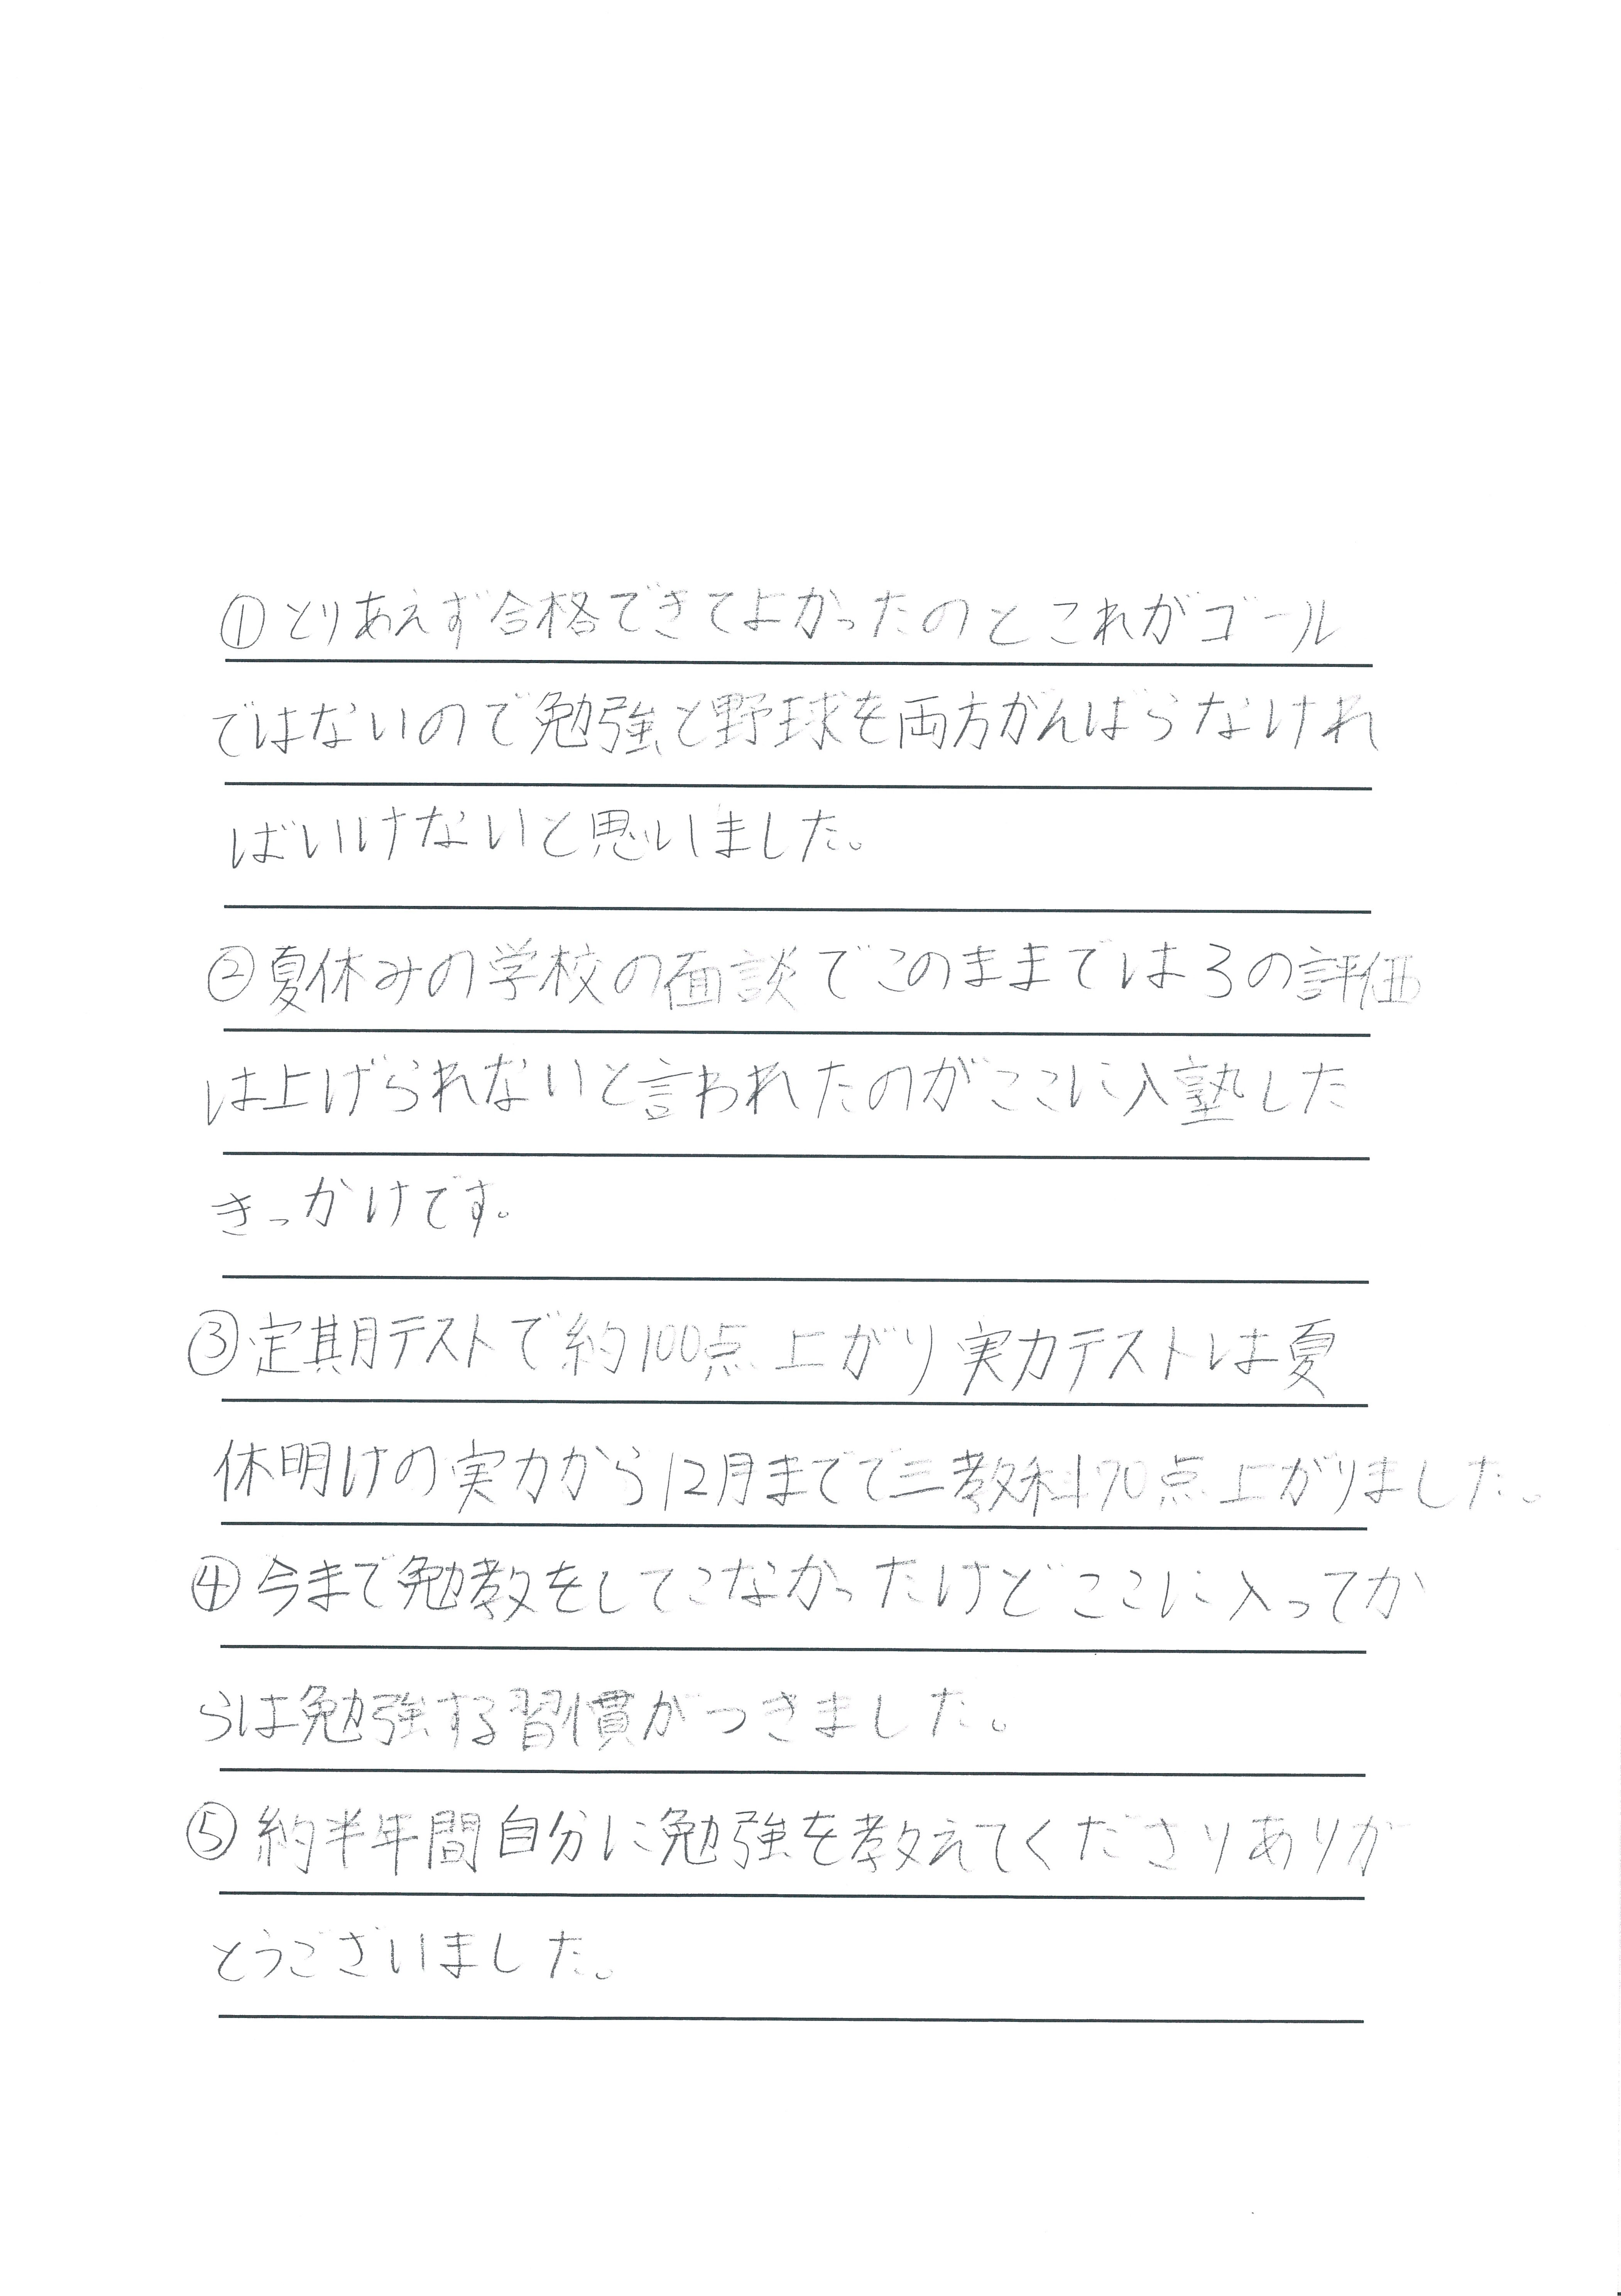 ①とりあえず合格できてよかったのとこれがゴール
ではないので勉強と野球を両方がんばらなけれ
ばいけないと思いました。
②夏休みの学校の面談でこのままでは3の評価
は上げられないと言われたのがここに入塾した
きっかけです。
③定期テストで約100点上がり実力テストは夏
休明けの実力から12月までで三教科70点上がりました。
④今まで勉教をしてこなかったけどここに入ってか
らは勉強する習慣がつきました。
⑤約半年間自分に勉強を教えてくださりありが
とうございました。